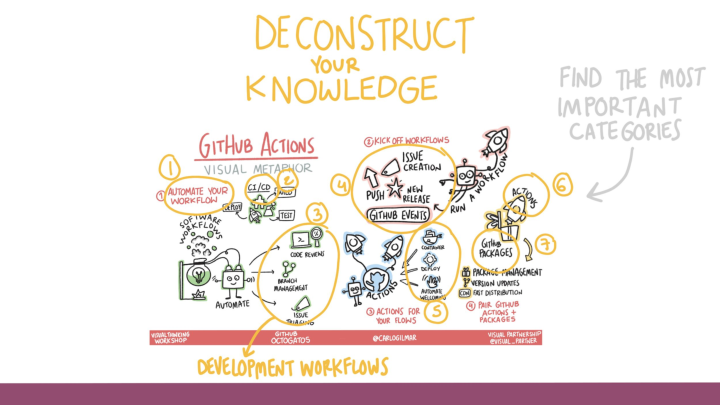 DECONSTRUCT
YOUR
KNOWLEDGE
FIND THE MOST
IMPORTANT
CATEGORIES
GITHUB ACTIONS
VISUAL METAPHOR
1
① AUTOMATE YOUR
WORKFLOW
CI/CD
2
BUILD
DEPLOY
TEST
SOFTWARE
WORKFLOWS
AUTOMATE
3
CODE REVIEWS
BRANCH
MANAGEMENT
ISSUE
TRIAGING
② KICK OFF WORKFLOWS
4
ISSUE
CREATION
PUSH
NEW
RELEASE
GITHUB EVENTS
RUN A WORKFLOW
ACTIONS
CONTAINER
DEPLOY
AUTOMATE
WELCOMING
5
③ ACTIONS FOR
YOUR FLOWS
ACTIONS
6
GITHUB
PACKAGES
7
PACKAGE MANAGEMENT
VERSION UPDATES
CDN FAST DISTRIBUTION
④ PAIR GITHUB
ACTIONS +
PACKAGES
VISUALTHINKING
WORKSHOP
GITHUB
OCTOGATOS
@CARLOGILMAR
VISUAL PARTNERSHIP
@VISUAL_PARTNER
DEVELOPMENT WORKFLOWS